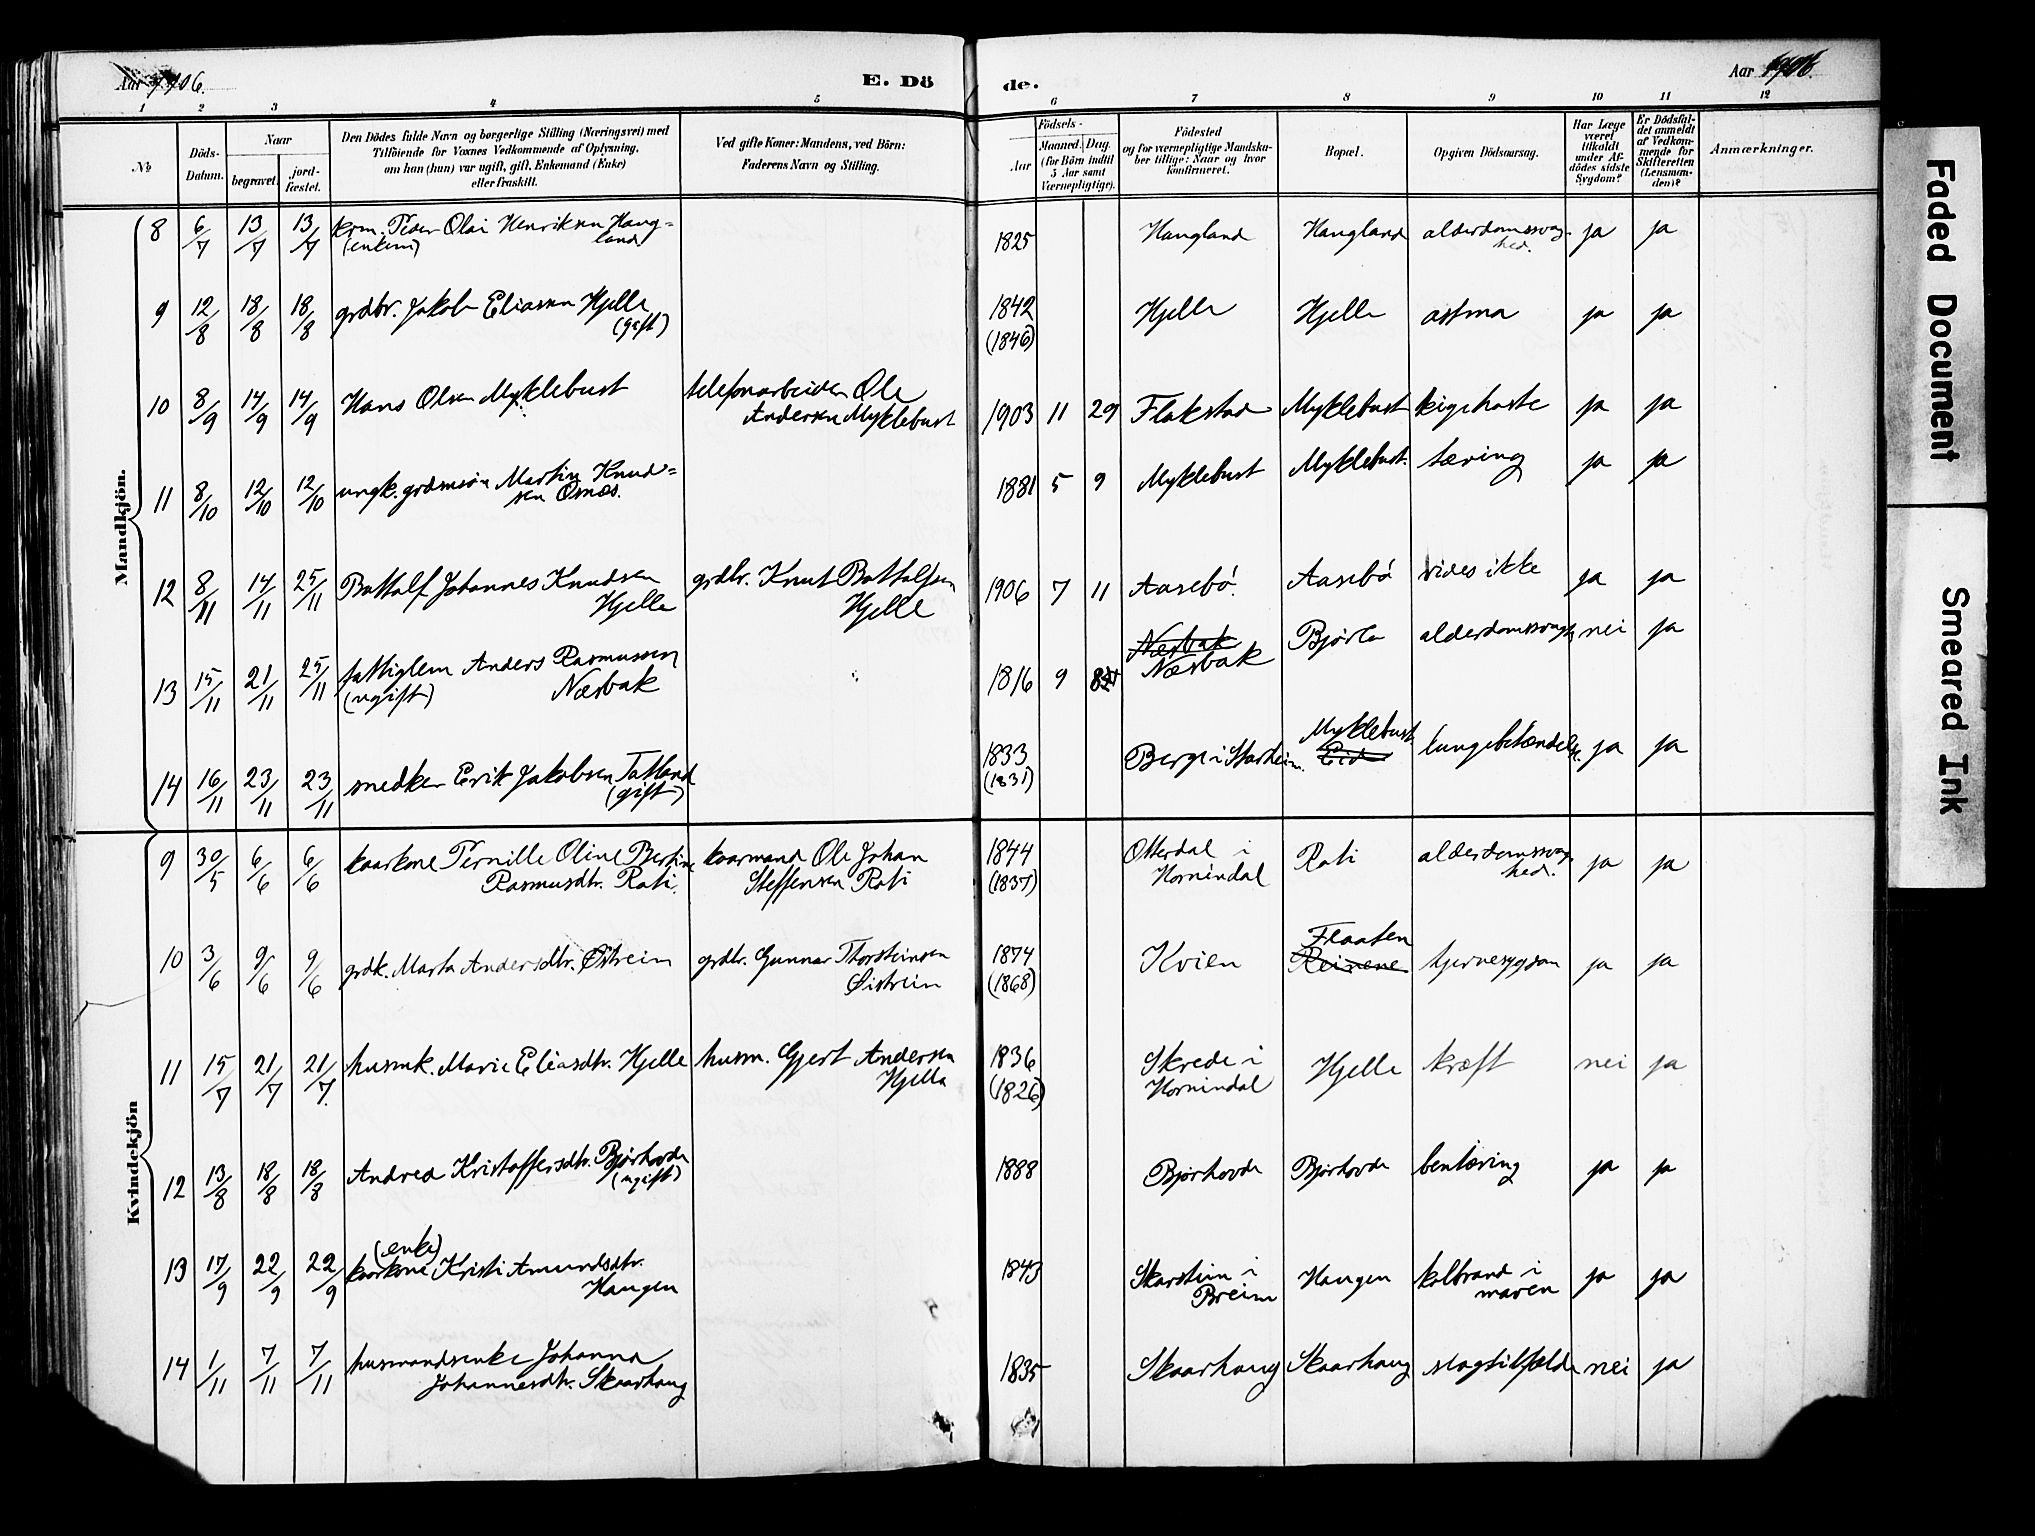 Aar 1906.
E. Dö
de.
Aar 1906.
1 2 3 4 5 6 7 8 9 10 11 12
No
Döds-
Datum.
Naar
begravet.
jord-
fæstet.
Den Dödes fulde Navn og borgerlige Stilling (Næringsvei) med
Tilföiende for Voxnes Vedkommende af Oplysning,
om han (hun) var ugift, gift, Enkemand (Enke)
eller fraskilt.
Ved gifte Koner: Mandens, ved Börn:
Faderens Navn og Stilling.
Födsels-
Aar
Maaned. Dag.
(for Börn indtil
5 Aar samt
Værnepligtige).
Födested
og for værnepligtige Mandska-
ber tillige: Naar og hvor
konfirmeret.
Bopæl.
Opgiven Dödsaarsag.
Har Læge
været
tilkaldt
under Af-
dödes sidste
Sygdom?
Er Dödsfal-
det anmeldt
af Vedkom-
mende for
Skifteretten
(Lensman-
den)?
Anmærkninger.
Mandkjön.
8 6/7 13/7 13/7 Peder Olai Henriksen Haug=
land
(enkem) 1825 Haugland Haugland alderdomssvag-
hed. ja ja
9 12/8 18/8 18/8 grdbr. Jakob Eliassen Hjelle
(gift) 1842
(1846) Hjelle Hjelle astma ja ja
10 8/9 14/9 14/9 Hans Olsen Myklebust telefonarbeider Ole
Andersen Myklebust 1903 11 29 Flakstad Myklebust kighoste ja ja
11 8/10 12/10 12/10 ungk. grdmsøn Martin Knud=
sen Osnæs. 1881 5 9 Myklebust Myklebust. tæring ja ja
12 8/11 14/11 25/11 Bottolf Johannes Knudsen
Hjelle grdbr. Knut Bottolfsen
Hjelle 1906 7 11 Aasebø. Aasebø vides ikke ja ja
13 15/11 21/11 25/11 fattiglem Anders Rasmussen
(ugift) Næsbak 1816 9 Næsbak
Næsbak Bjørlo alderdomssvagh. nei ja
14 16/11 23/11 23/11 snedker Erik Jakobsen Totland
(gift) 1833
(1831) Berge i Starheim. Myklebust
Eid lungebetændelse. ja ja
Kvindekjön
9 30/5 6/6 6/6 kaarkone Pernille Oline Bertine
Rasmusdtr. Roti. kaarmand Ole Johan
Steffensen Roti 1844
(1837) Otterdal i
Hornindal Roti alderdomssvag-
hed. ja ja
10 3/6 9/6 9/6 grdk. Marta Andersdtr. Østrein grdbr. Gunnar Thorsteinsen
Øistrein 1874
(1868) Kvien Flaaten
Reinene hjernesygdom ja ja
11 15/7 21/7 21/7 husmk. Marie Eliasdtr. Hjelle husm. Gjert Andersen
Hjelle 1836
(1826) Skrede i
Hornindal Hjelle kræft nei ja
12 13/8 18/8 18/8 Andrea Kristoffersdtr. Bjørhovde
(ugift) 1888 Bjørhovde Bjørhovde bentæring ja ja
13 17/9 22/9 22/9 (enke)
kaarkone Kristi Amundsdtr.
Haugen 1843 Skarstein i
Breim Haugen kolbrand i
maven ja ja
14 1/11 7/11 7/11 husmandsenke Johanna
Johannesdtr. Skaarhaug 1835 Skaarhaug Skaarhaug slagtilfælde nei ja
Faded Document
Smeared Ink